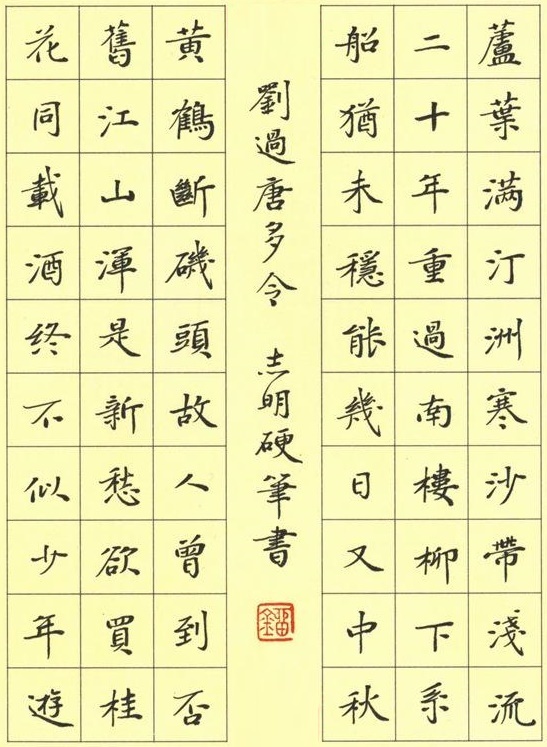 蘆葉滿汀洲寒沙帶淺流
二十年重過南樓柳下系
船猶未穩能幾日又中秋
劉過唐多令 志明硬筆書
黃鶴斷磯頭故人曾到否
舊江山渾是新愁欲買桂
花同載酒終不似少年遊